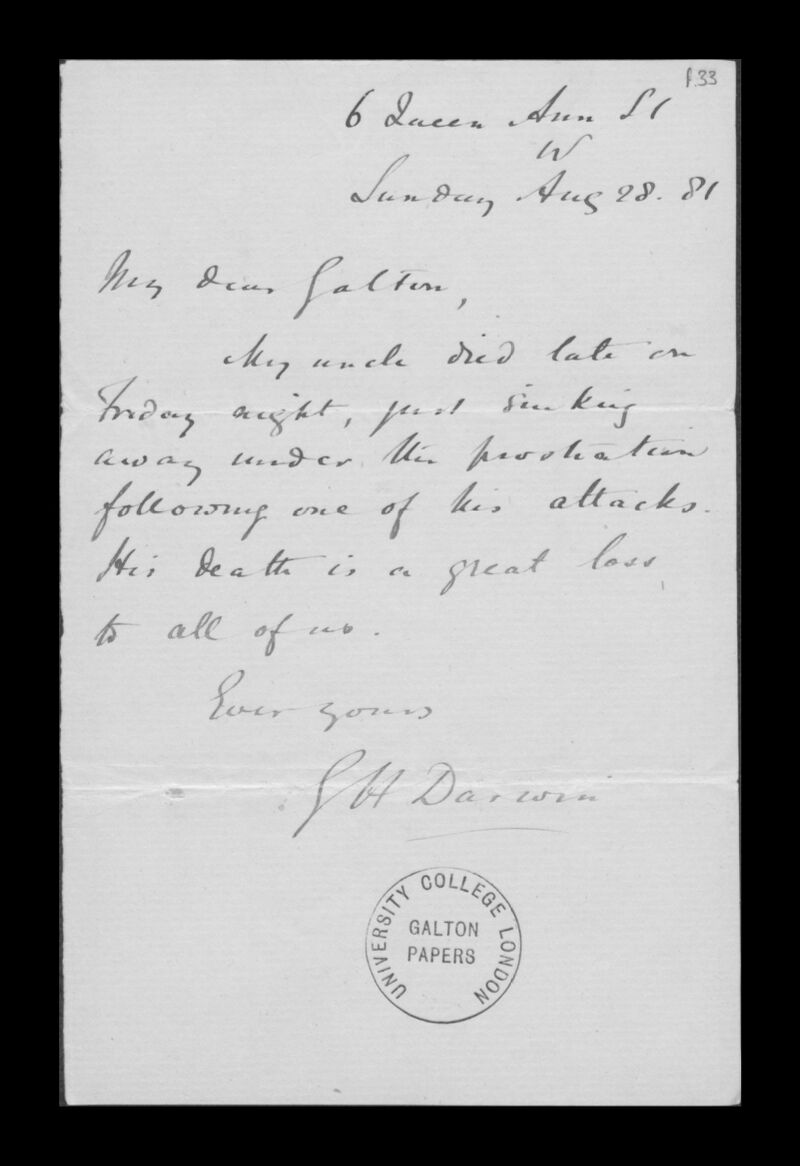 f.33
6 Queen Ann St
W
Sunday Aug 28. 81
My dear Galton,
My uncle died late on
Friday night, just sinking
away under the prostration
following one of his attacks.
His death is a great loss
to all of us.
Ever yours
G H Darwin
UNIVERSITY COLLEGE LONDON
GALTON
PAPERS